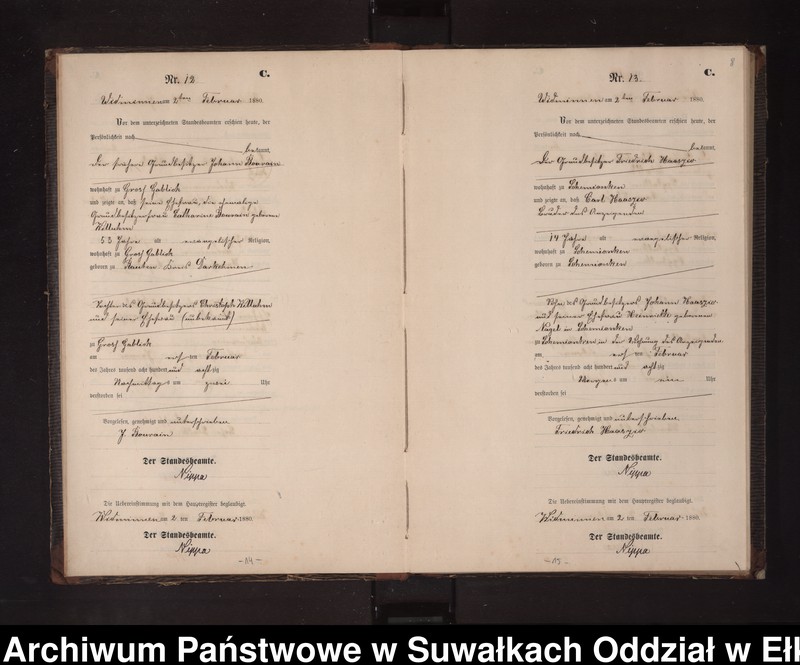 Nr. 12
C.
Widminnen am 2ten Februar 1880.
Vor dem unterzeichneten Standesbeamten erschien heute, der
Persönlichkeit nach
bekannt,
der frühere Grundbesitzer Johann
wohnhaft zu Groß Gablick
und zeigte an, daß seine Ehefrau, die ehemalige
Grundbesitzerfrau Catharine geborene
53 Jahre alt evangelischer Religion,
wohnhaft zu Groß Gablick
geboren zu Kreis Darkehmen
Tochter des Grundbesitzers Christoph
und seiner Ehefrau (unbekannt)
zu Groß Gablick
am ersten Februar
des Jahres tausend acht hundert und achtzig
Nachmittags um zwei Uhr
verstorben sei
Vorgelesen, genehmigt und unterschrieben
J.
Der Standesbeamte.
Nippa
Die Uebereinstimmung mit dem Hauptregister beglaubigt.
Widminnen am 2 ten Februar 1880.
Der Standesbeamte.
Nippa
-14-
8
Nr. 13.
C.
Widminnen am 2ten Februar 1880.
Vor dem unterzeichneten Standesbeamten erschien heute, der
Persönlichkeit nach
bekannt,
Der Grundbesitzer Friedrich
wohnhaft zu Schemionken
und zeigte an, daß Carl
Bruder des Anzeigenden
14 Jahre alt evangelischer Religion,
wohnhaft zu Schemionken
geboren zu Schemionken
Sohn des Grundbesitzers Johann
und seiner Ehefrau Henriette geborenen
Nagel in Schemionken
zu Schemionken in der Wohnung des Anzeigenden
am ersten Februar
des Jahres tausend acht hundert und achtzig
Morgens um Uhr
verstorben sei
Vorgelesen, genehmigt und unterschrieben
Friedrich
Der Standesbeamte.
Nippa
Die Uebereinstimmung mit dem Hauptregister beglaubigt.
Widminnen am 2 ten Februar 1880.
Der Standesbeamte.
Nippa
-15-
Archiwum Państwowe w Suwałkach Oddział w Ełk